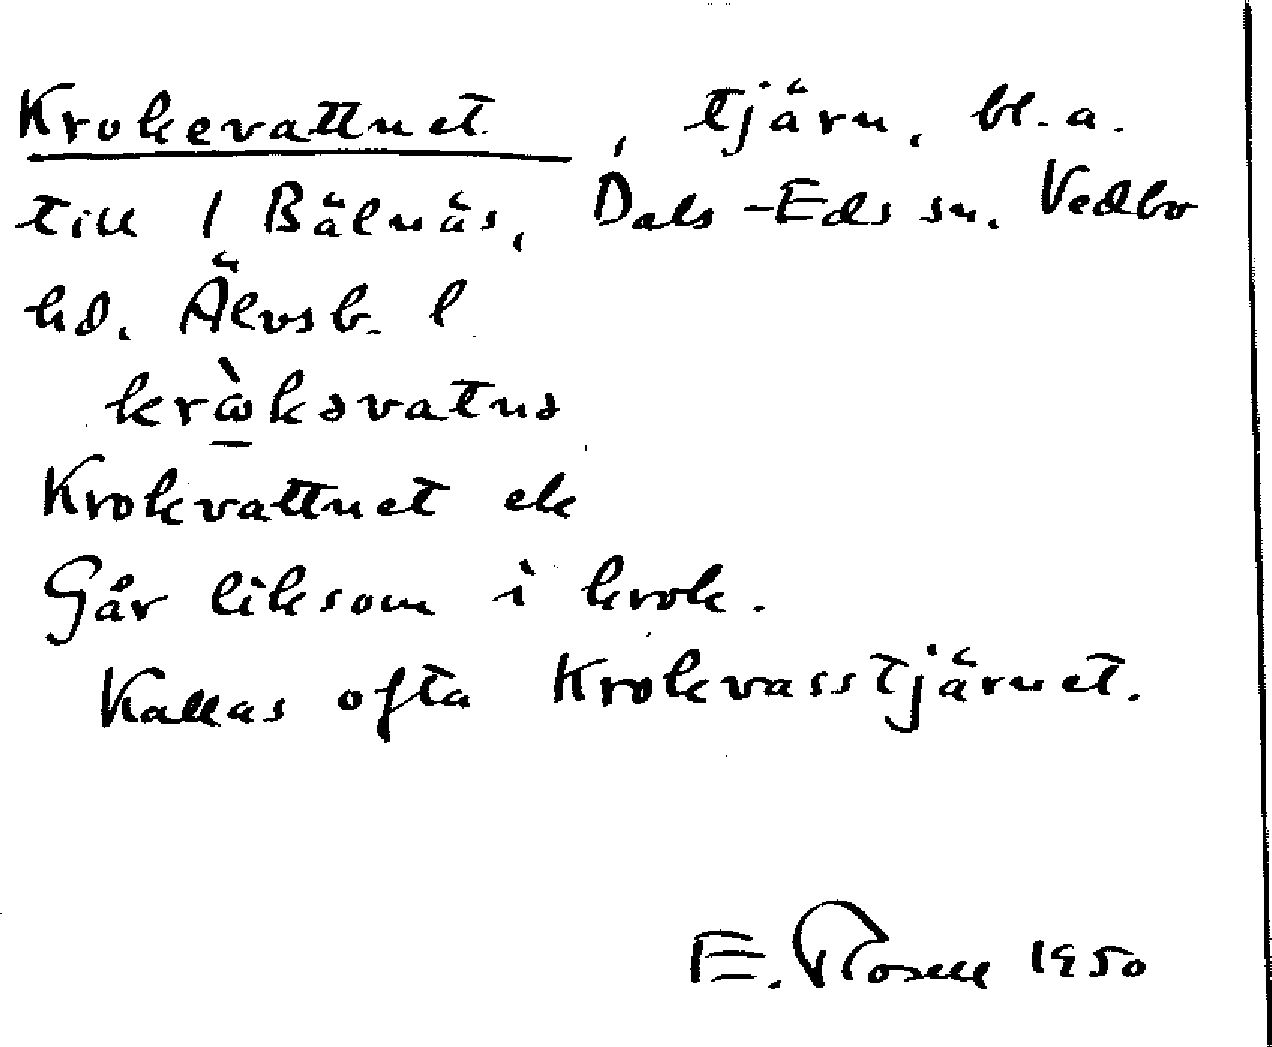 Krokevattnet, tjärn, bl.a.
till 1 Bälnäs, Dals-Eds sn. Vedbo
hd. Älvsb. l
krὼkəvatnə
Krokvattnet ek
Går liksom i krok.
Kallas ofta Krokvasstjärnet.
E. Rosell 1950